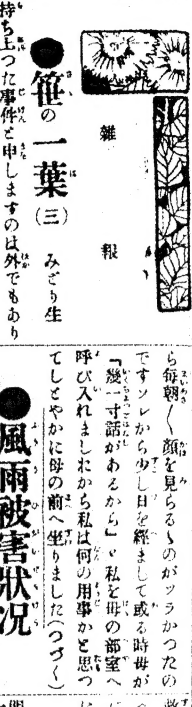 雑報
●笹の一葉（三） みどり生
持ち上つた事件と申しますのは外でもあり
ら毎朝〳〵顔を見らるゝのがツラかつたの
ですソレから少し日を經まして或る時母が
「幾一寸話があるから」と私を母の部室へ
呼び入れましたから私は何の用事かと思つ
てしとやかに母の前へ坐りました（つづく）
●風雨被害狀况